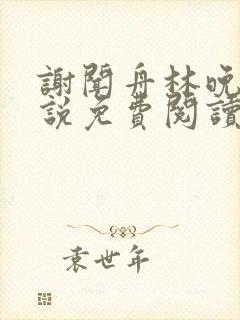 謝聞舟林晚
説免費閱讀
袁世年